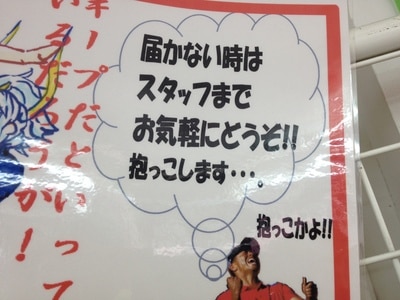 届かない時は
スタッフまで
お気軽にどうぞ!!
抱っこします･･･。
抱っこかよ!!
ープだといって
いるだろうが!